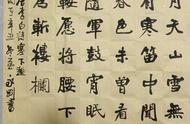 月天山雪無
有寒笛中聞
春色未曾看
隨軍鼓宵眠
鞍願將腰下
斬樓蘭
唐李白詩塞下